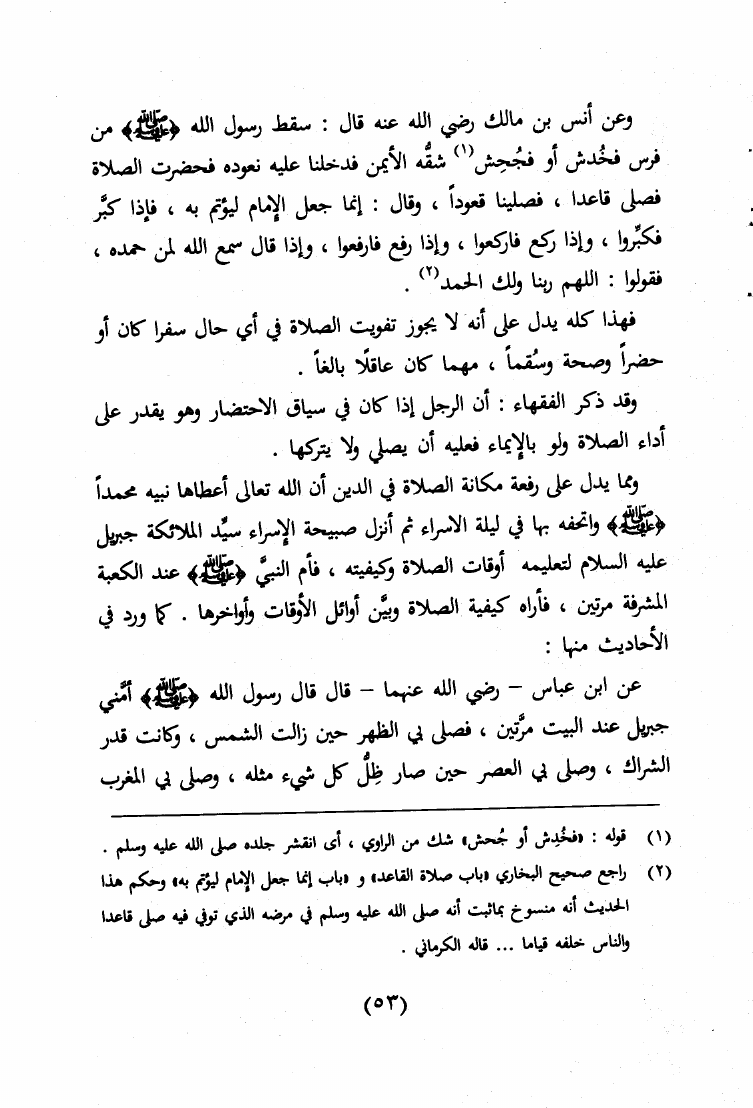 وعن أنس بن مالك رضي الله عنه قال : سقط رسول الله ﴿ﷺ﴾ من
فرس فخُدش أو فجُحِش(١) شقُّه الأيمن فدخلنا عليه نعوده فحضرت الصلاة
فصلى قاعدا ، فصلينا قعوداً ، وقال : إنما جعل الإمام ليؤتم به ، فإذا كبَّر
فكبِّروا ، وإذا ركع فاركعوا ، وإذا رفع فارفعوا ، وإذا قال سمع الله لمن حمده ،
فقولوا : اللهم ربنا ولك الحمد(٢) .
فهذا كله يدل على أنه لا يجوز تفويت الصلاة في أي حال سفرا كان أو
حضراً وصحة وسُقماً ، مهما كان عاقلًا بالغاً .
وقد ذكر الفقهاء : أن الرجل إذا كان في سياق الاحتضار وهو يقدر على
أداء الصلاة ولو بالإيماء فعليه أن يصلي ولا يتركها .
ومما يدل على رفعة مكانة الصلاة في الدين أن الله تعالى أعطاها نبيه محمداً
﴿ﷺ﴾ واتحفه بها في ليلة الاسراء ثم أنزل صبيحة الإسراء سيِّد الملائكة جبريل
عليه السلام لتعليمه أوقات الصلاة وكيفيته ، فأم النبيَّ ﴿ﷺ﴾ عند الكعبة
المشرفة مرتين ، فأراه كيفية الصلاة وبيَّن أوائل الأوقات وأواخرها . كما ورد في
الأحاديث منها :
عن ابن عباس – رضي الله عنهما – قال قال رسول الله ﴿ﷺ﴾ أمَّني
جبريل عند البيت مرَّتين ، فصلى بي الظهر حين زالت الشمس ، وكانت قدر
الشراك ، وصلى بي العصر حين صار ظِلُّ كل شيء مثله ، وصلى بي المغرب
(١) قوله : «فخُدِش أو جُحش» شك من الراوي ، أى انقشر جلده صلى الله عليه وسلم .
(٢) راجع صحيح البخاري «باب صلاة القاعد» و «باب إنما جعل الإمام ليؤتم به» وحكم هذا
الحديث أنه منسوخ بماثبت أنه صلى الله عليه وسلم في مرضه الذي توفي فيه صلى قاعدا
والناس خلفه قياما ... قاله الكرماني .
(٥٣)